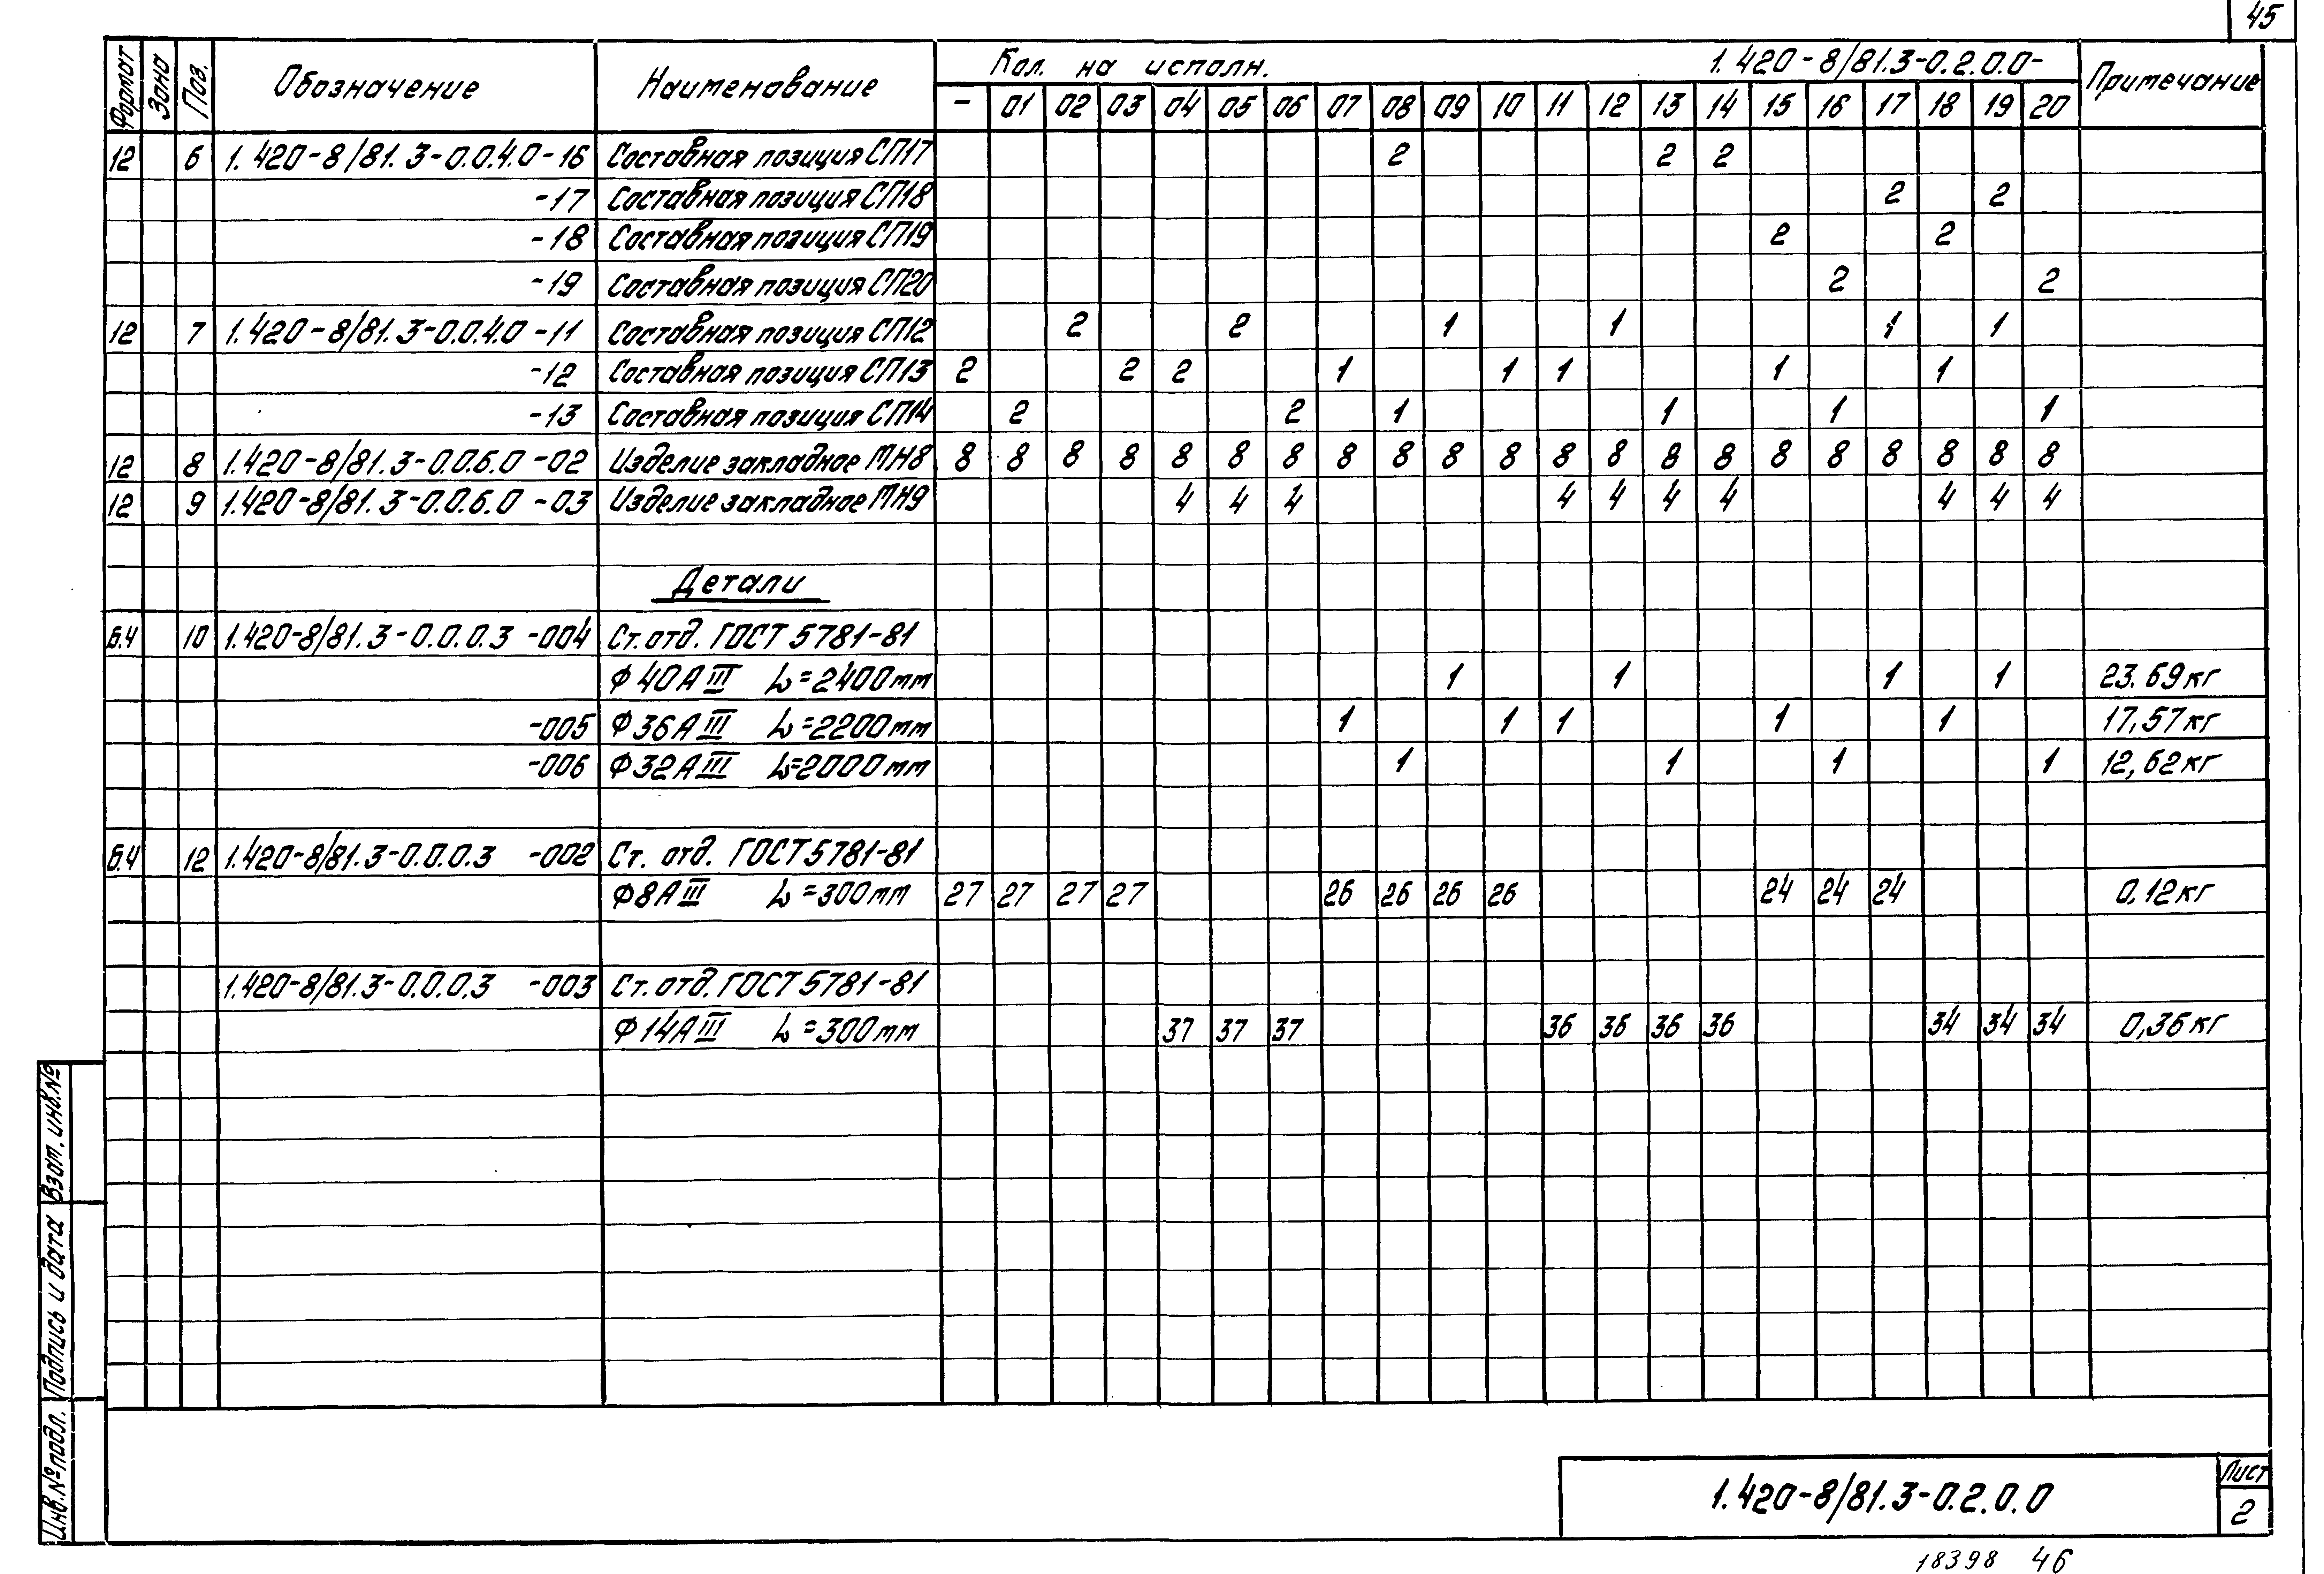 45
Формат Зона Поз. Обозначение Наименование Кол. на исполн. 1.420-8/81.3-0.2.0.0- Примечание
- 01 02 03 04 05 06 07 08 09 10 11 12 13 14 15 16 17 18 19 20
12 6 1.420-8/81.3-0.0.4.0-16 Составная позиция СП17 2 2 2
-17 Составная позиция СП18 2 2
-18 Составная позиция СП19 2 2
-19 Составная позиция СП20 2 2
12 7 1.420-8/81.3-0.0.4.0-11 Составная позиция СП12 2 2 1 1 1 1
-12 Составная позиция СП13 2 2 2 1 1 1 1 1
-13 Составная позиция СП14 2 2 1 1 1 1
12 8 1.420-8/81.3-0.0.6.0-02 Изделие закладное МН8 8 8 8 8 8 8 8 8 8 8 8 8 8 8 8 8 8 8 8 8 8
12 9 1.420-8/81.3-0.0.6.0-03 Изделие закладное МН9 4 4 4 4 4 4 4 4 4 4
Детали
Б.Ч 10 1.420-8/81.3-0.0.0.3-004 Ст.отд. ГОСТ 5781-81
Ф40АIII L=2400мм 1 1 1 1 23.69кг
-005 Ф36АIII L=2200мм 1 1 1 1 1 17,57кг
-006 Ф32АIII L=2000мм 1 1 1 1 12,62кг
Б.Ч 12 1.420-8/81.3-0.0.0.3 -002 Ст. отд. ГОСТ 5781-81
Ф8АIII L=300мм 27 27 27 27 26 26 26 26 24 24 24 0,12кг
1.420-8/81.3-0.0.0.3 -003 Ст.отд. ГОСТ 5781-81
Ф14АIII L=300мм 37 37 37 36 36 36 36 34 34 34 0,36кг
Взам. инв.№
Подпись и дата
Инв.№подл.
1.420-8/81.3-0.2.0.0
Лист
2
18398 46